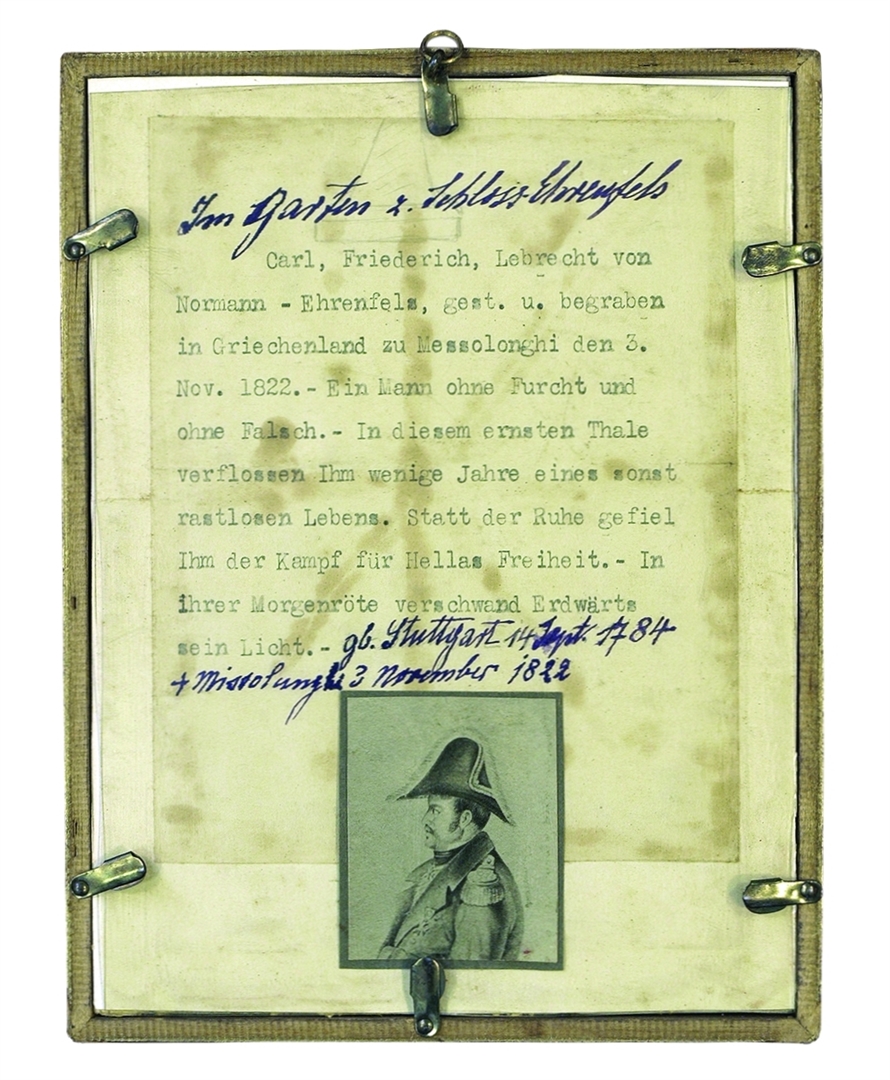 Im Garten z. Schloss Ehrenfels
Carl, Friederich, Lebrecht von
Normann - Ehrenfels, gest. u. begraben
in Griechenland zu Messolonghi den 3.
Nov. 1822.- Ein Mann ohne Furcht und
ohne Falsch.- In diesem ernsten Thale
verflossen Ihm wenige Jahre eines sonst
rastlosen Lebens. Statt der Ruhe gefiel
Ihm der Kampf für Hellas Freiheit.- In
ihrer Morgenröte verschwand Erdwärts
sein Licht.- gb. Stuttgart 14 Sept. 1784
+ Missolunghi 3 November 1822